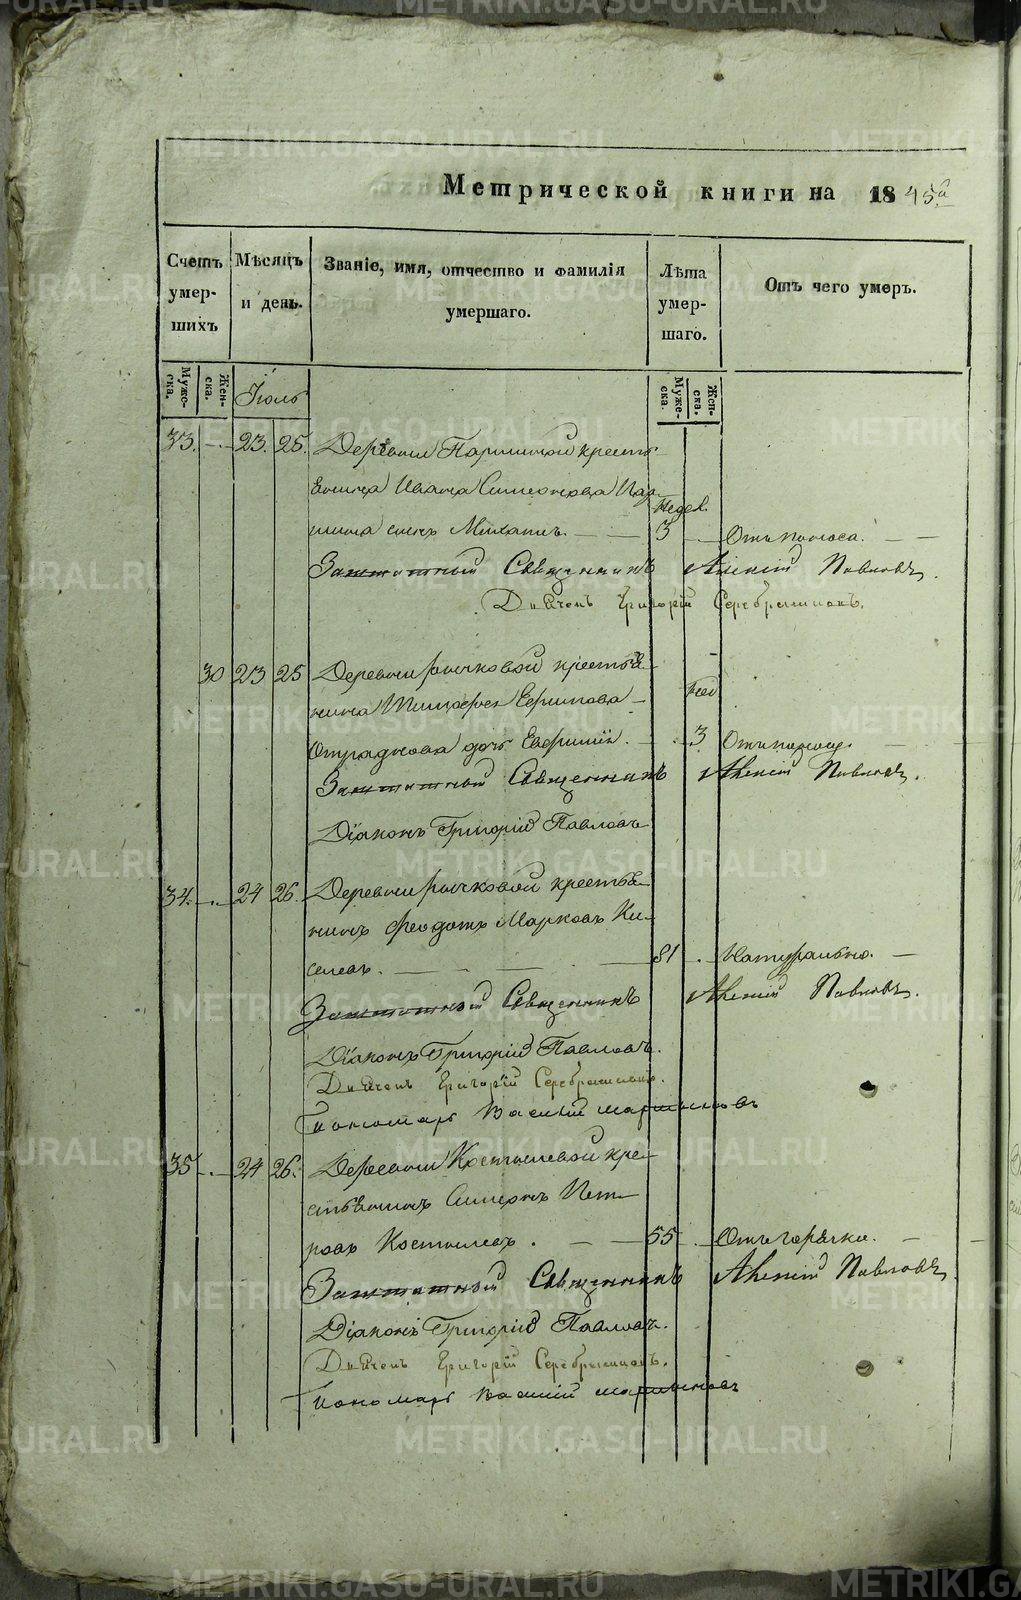 Метрической книги на 1845й
Счетъ умер-шихъ
Мѣсяцъ и день.
Званіе, имя, отчество и фамилія умершаго.
Лѣта умер-шаго.
Отъ чего умеръ.
Мужеска.
Женска.
Іюль
Мужеска.
Женска.
33. 23. 25. Деревни Паршиной кресть
янина Ивана Симеонова Пар
недел.
шина сынъ Михаилъ. 3 Отъ поноса.
Заштатный Священникъ Алексій Павловъ.
Дьячекъ Григорій Серебрениковъ.
30 23 25 Деревни Рычковой крестья
нина Тимофея Ефимова
нед
дочь Евфимія. 3 Отъ поноса.
Заштатный Священникъ Алексій Павловъ.
Діаконъ Григорій Павловъ
34. 24 26. Деревни Рычковой крестья
нинъ Феодотъ Марковъ Ки
селевъ. 81 Натурально.
Заштатный Священникъ Алексій Павловъ.
Діаконъ Григорій Павловъ.
Дьячекъ Григорій Серебрениковъ.
Пономарь Василій Мартыновъ
35 24 26. Деревни Костылевой кре
стьянинъ Симеонъ Пет
ровъ Костылевъ. 55 Отъ горячки.
Заштатный Священникъ Алексій Павловъ.
Діаконъ Григорій Павловъ.
Дьячекъ Григорій Серебрениковъ.
Пономарь Василій Мартыновъ
METRIKI.GASO-URAL.RU